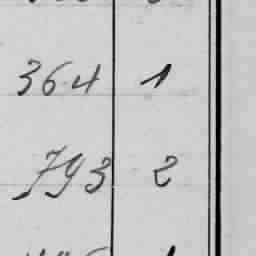 364 1
793 2